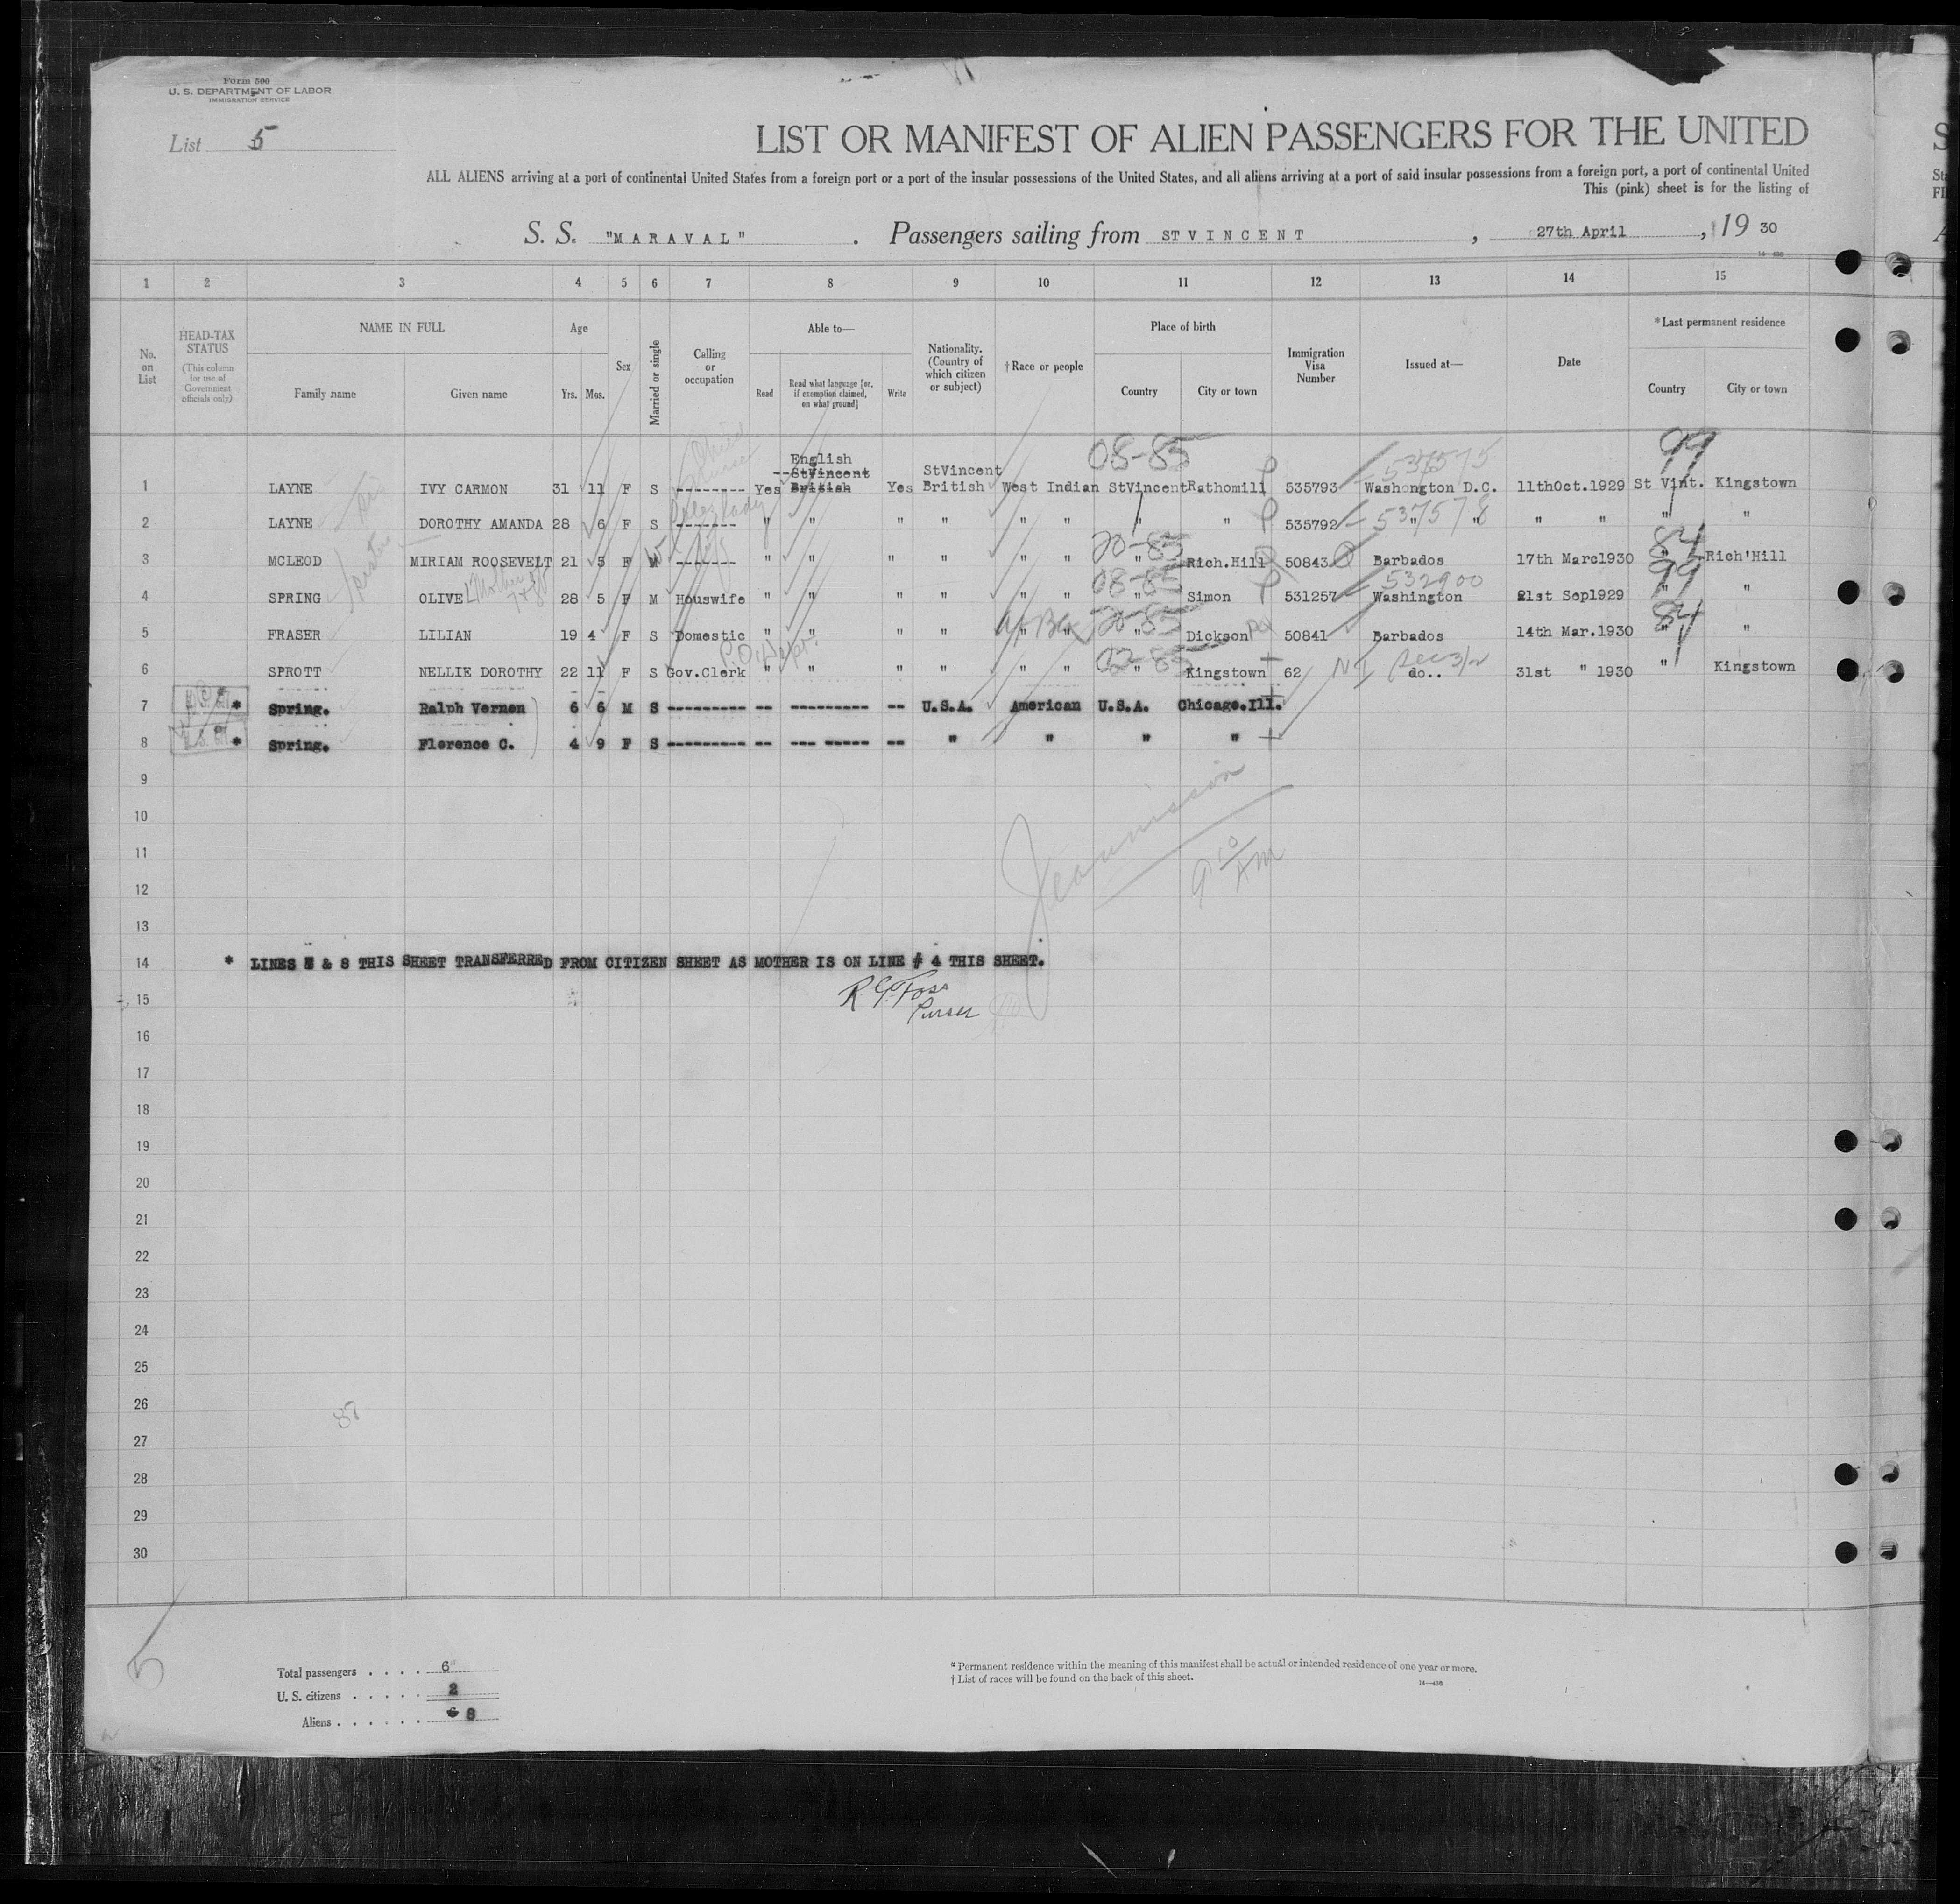 Form 500
U. S. DEPARTMENT OF LABOR
IMMIGRATION SERVICE
List 5
LIST OR MANIFEST OF ALIEN PASSENGERS FOR THE UNITED
ALL ALIENS arriving at a port of continental United States from a foreign port or a port of the insular possessions of the United States, and all aliens arriving at a port of said insular possessions from a foreign port, a port of continental United
This (pink) sheet is for the listing of
S. S. "MARAVAL" . Passengers sailing from ST VINCENT , 27th April , 19 30
14-430
1 2 3 4 5 6 7 8 9 10 11 12 13 14 15
No. on List
HEAD-TAX STATUS
(This column for use of Government officials only)
NAME IN FULL
Family name Given name
Age
Yrs. Mos.
Sex
Married or single
Calling or occupation
Able to—
Read
Read what language [or, if exemption claimed, on what ground]
Write
Nationality. (Country of which citizen or subject)
† Race or people
Place of birth
Country City or town
Immigration Visa Number
Issued at—
Date
* Last permanent residence
Country City or town
08-85 99
English
StVincent StVincent
537575
1 LAYNE IVY CARMON 31 11 F S -------- Yes British Yes British West Indian StVincent Rathomill 535793 Washongton D.C. 11thOct.1929 St Vint. Kingstown
2 LAYNE DOROTHY AMANDA 28 6 F S ------- " " " " " " " " 535792 537578 " " " " " "
20-85 84
3 MCLEOD MIRIAM ROOSEVELT 21 5 F M ------- " " " " " " " Rich.Hill 50843 Barbados 17th Marc1930 " Rich'Hill
08-85 532900 99
4 SPRING OLIVE 28 5 F M Houswife " " " " " " " Simon 531257 Washington 21st Sep1929 " "
20-85 84
5 FRASER LILIAN 19 4 F S Domestic " " " " " " " Dickson 50841 Barbados 14th Mar.1930 " "
P.O. Dept.
02-85
6 SPROTT NELLIE DOROTHY 22 11 F S Gov.Clerk " " " " " " " Kingstown 62 NI do.. 31st " 1930 " Kingstown
7 * Spring. Ralph Vernon 6 6 M S --------- -- --------- -- U.S.A. American U.S.A. Chicago.Ill.
8 * Spring. Florence C. 4 9 F S --------- -- --- ----- -- " " " "
9
10
11
9 10 AM
12
13
14 * LINES 7 & 8 THIS SHEET TRANSFERRED FROM CITIZEN SHEET AS MOTHER IS ON LINE # 4 THIS SHEET.
15 R G Foss
Purser
16
17
18
19
20
21
22
23
24
25
26
87
27
28
29
30
5
Total passengers . . . . 6
U. S. citizens . . . . . 2
Aliens . . . . . . 8
* Permanent residence within the meaning of this manifest shall be actual or intended residence of one year or more.
† List of races will be found on the back of this sheet.
14—430